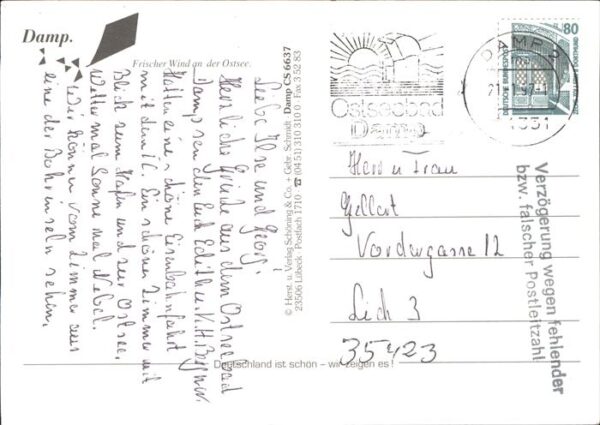 Damp.
Frischer Wind an der Ostsee.
Liebe Ilse und Georg!
Herzliche Grüße aus dem Ostseebad
Damp senden euch Edith u. K.H.
Hatten eine schöne Eisenbahnfahrt
mit dem IC. Ein schönes Zimmer mit
Blick zum Hafen und zur Ostsee.
Wetter mal Sonne mal Nebel.
Wir können vom Zimmer aus
eine der Bohrinseln sehen.
© Herst. u. Verlag Schöning & Co. + Gebr. Schmidt Damp CS 6637
23506 Lübeck · Postfach 1710 · ☎ (04 51) 310 310 0 · Fax 3 52 83
Deutschland ist schön – wir zeigen es!
Ostseebad
Damp
DAMP 2
1351
80
DEUTSCHE BUNDESPOST
Herrn u Frau
Gellert
Vordergasse 12
Lich 3
35423
Verzögerung wegen fehlender
bzw. falscher Postleitzahl